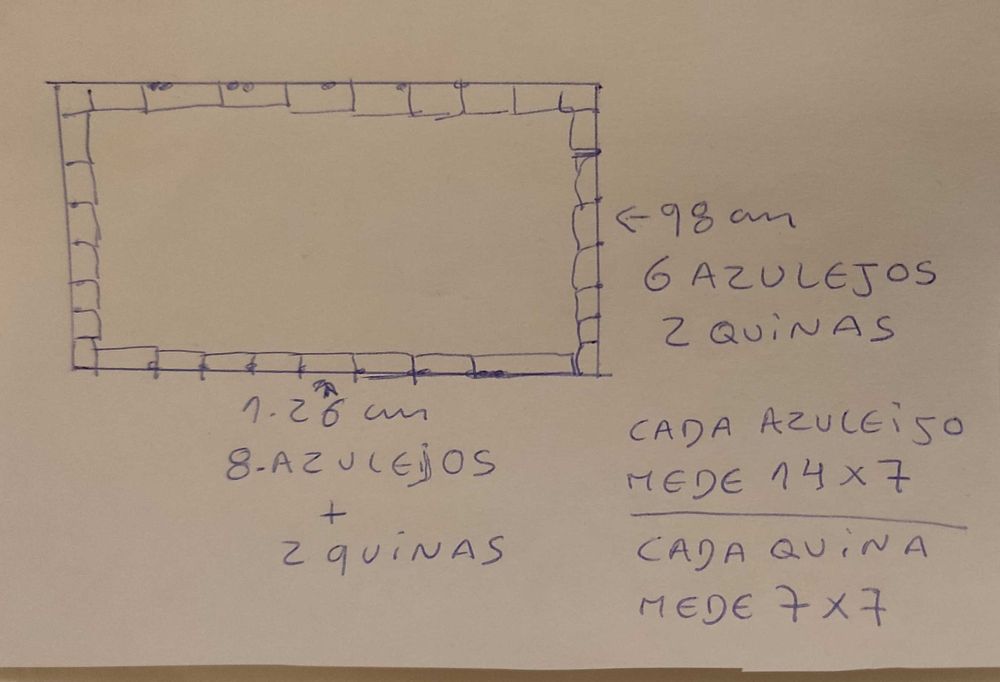 ← 98 cm
6 AZULEJOS
2 QUiNAS
1.26 cm
8-AZULEjOS
+
2 qUiNAS
CADA AZULEiJO
MEDE 14 x 7
CADA QUiNA
MEDE 7 x 7